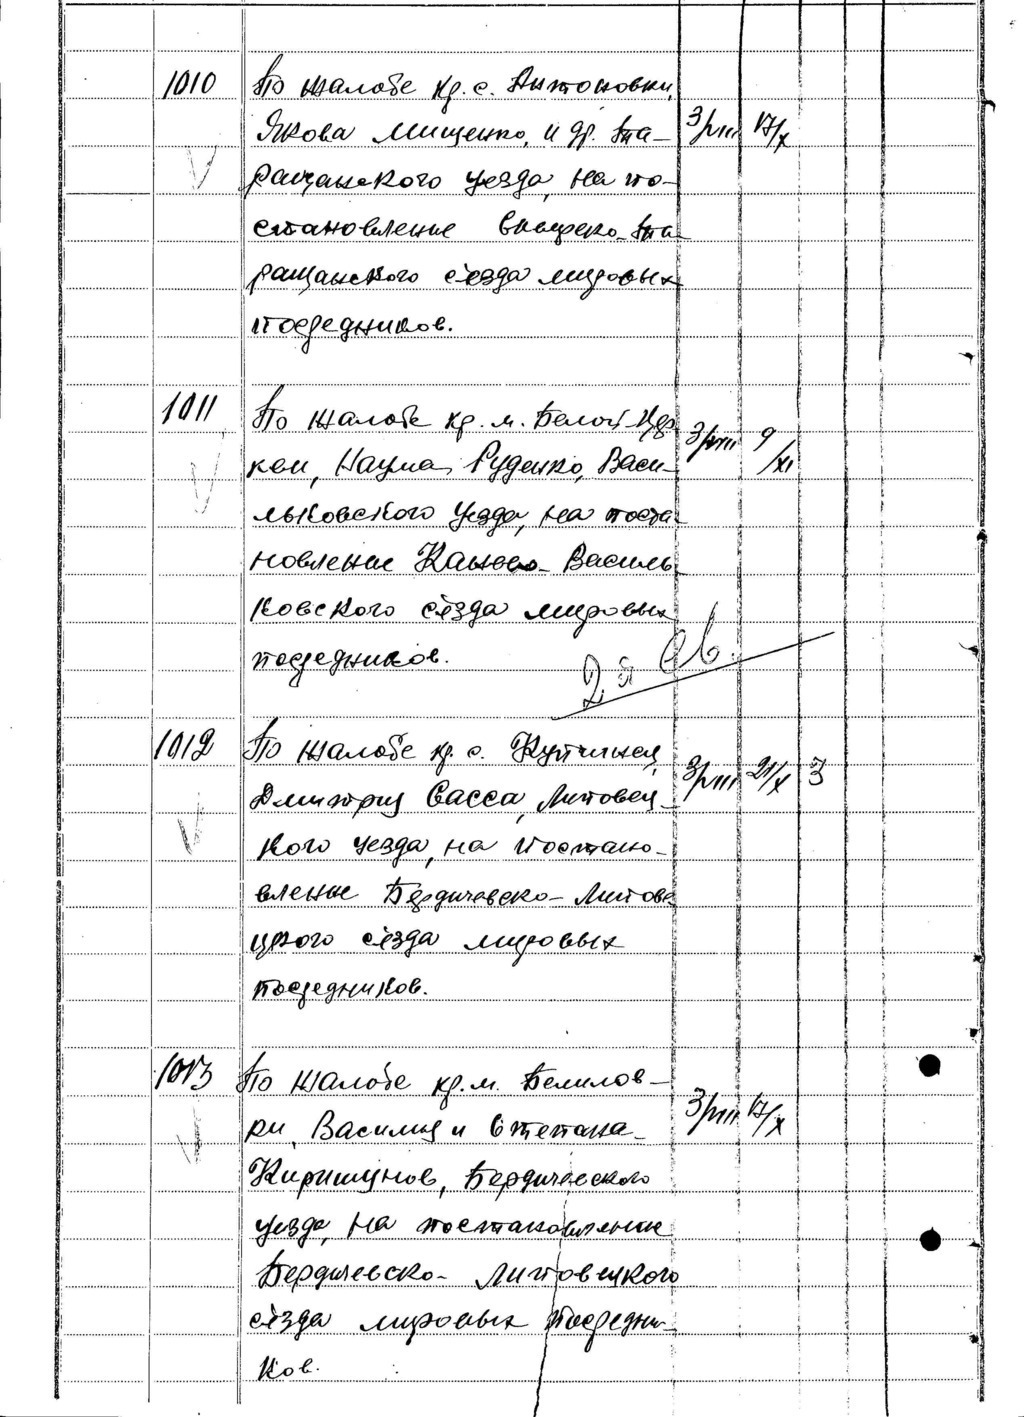 1010 По жалобе кр. с. Антоновки,
Якова Мищенко, и др. Та- 3/VIII 17/X
ращанского уезда, на по-
становление Та-
ращанского съезда мировых
посредников.
1011 По жалобе кр. м. Белой-Цер
кви, Наума Руденко, Васи- 3/VIII 9/XI
льковского уезда, на поста-
новление Канево-Василь
ковского съезда мировых
посредников.
2 я св.
1012 По жалобе кр. с.
Дмитрия Сасса, Липовец- 3/VIII 21/X 3
кого уезда, на постано-
вление Бердичевско-Липове
цкого съезда мировых
посредников.
1013 По жалобе кр. м. Белилов-
ки, Василия и Степана 3/VIII 17/X
Киришунов, Бердичевского
уезда, на постановление
Бердичевско-Липовецкого
съезда мировых посредни-
ков.